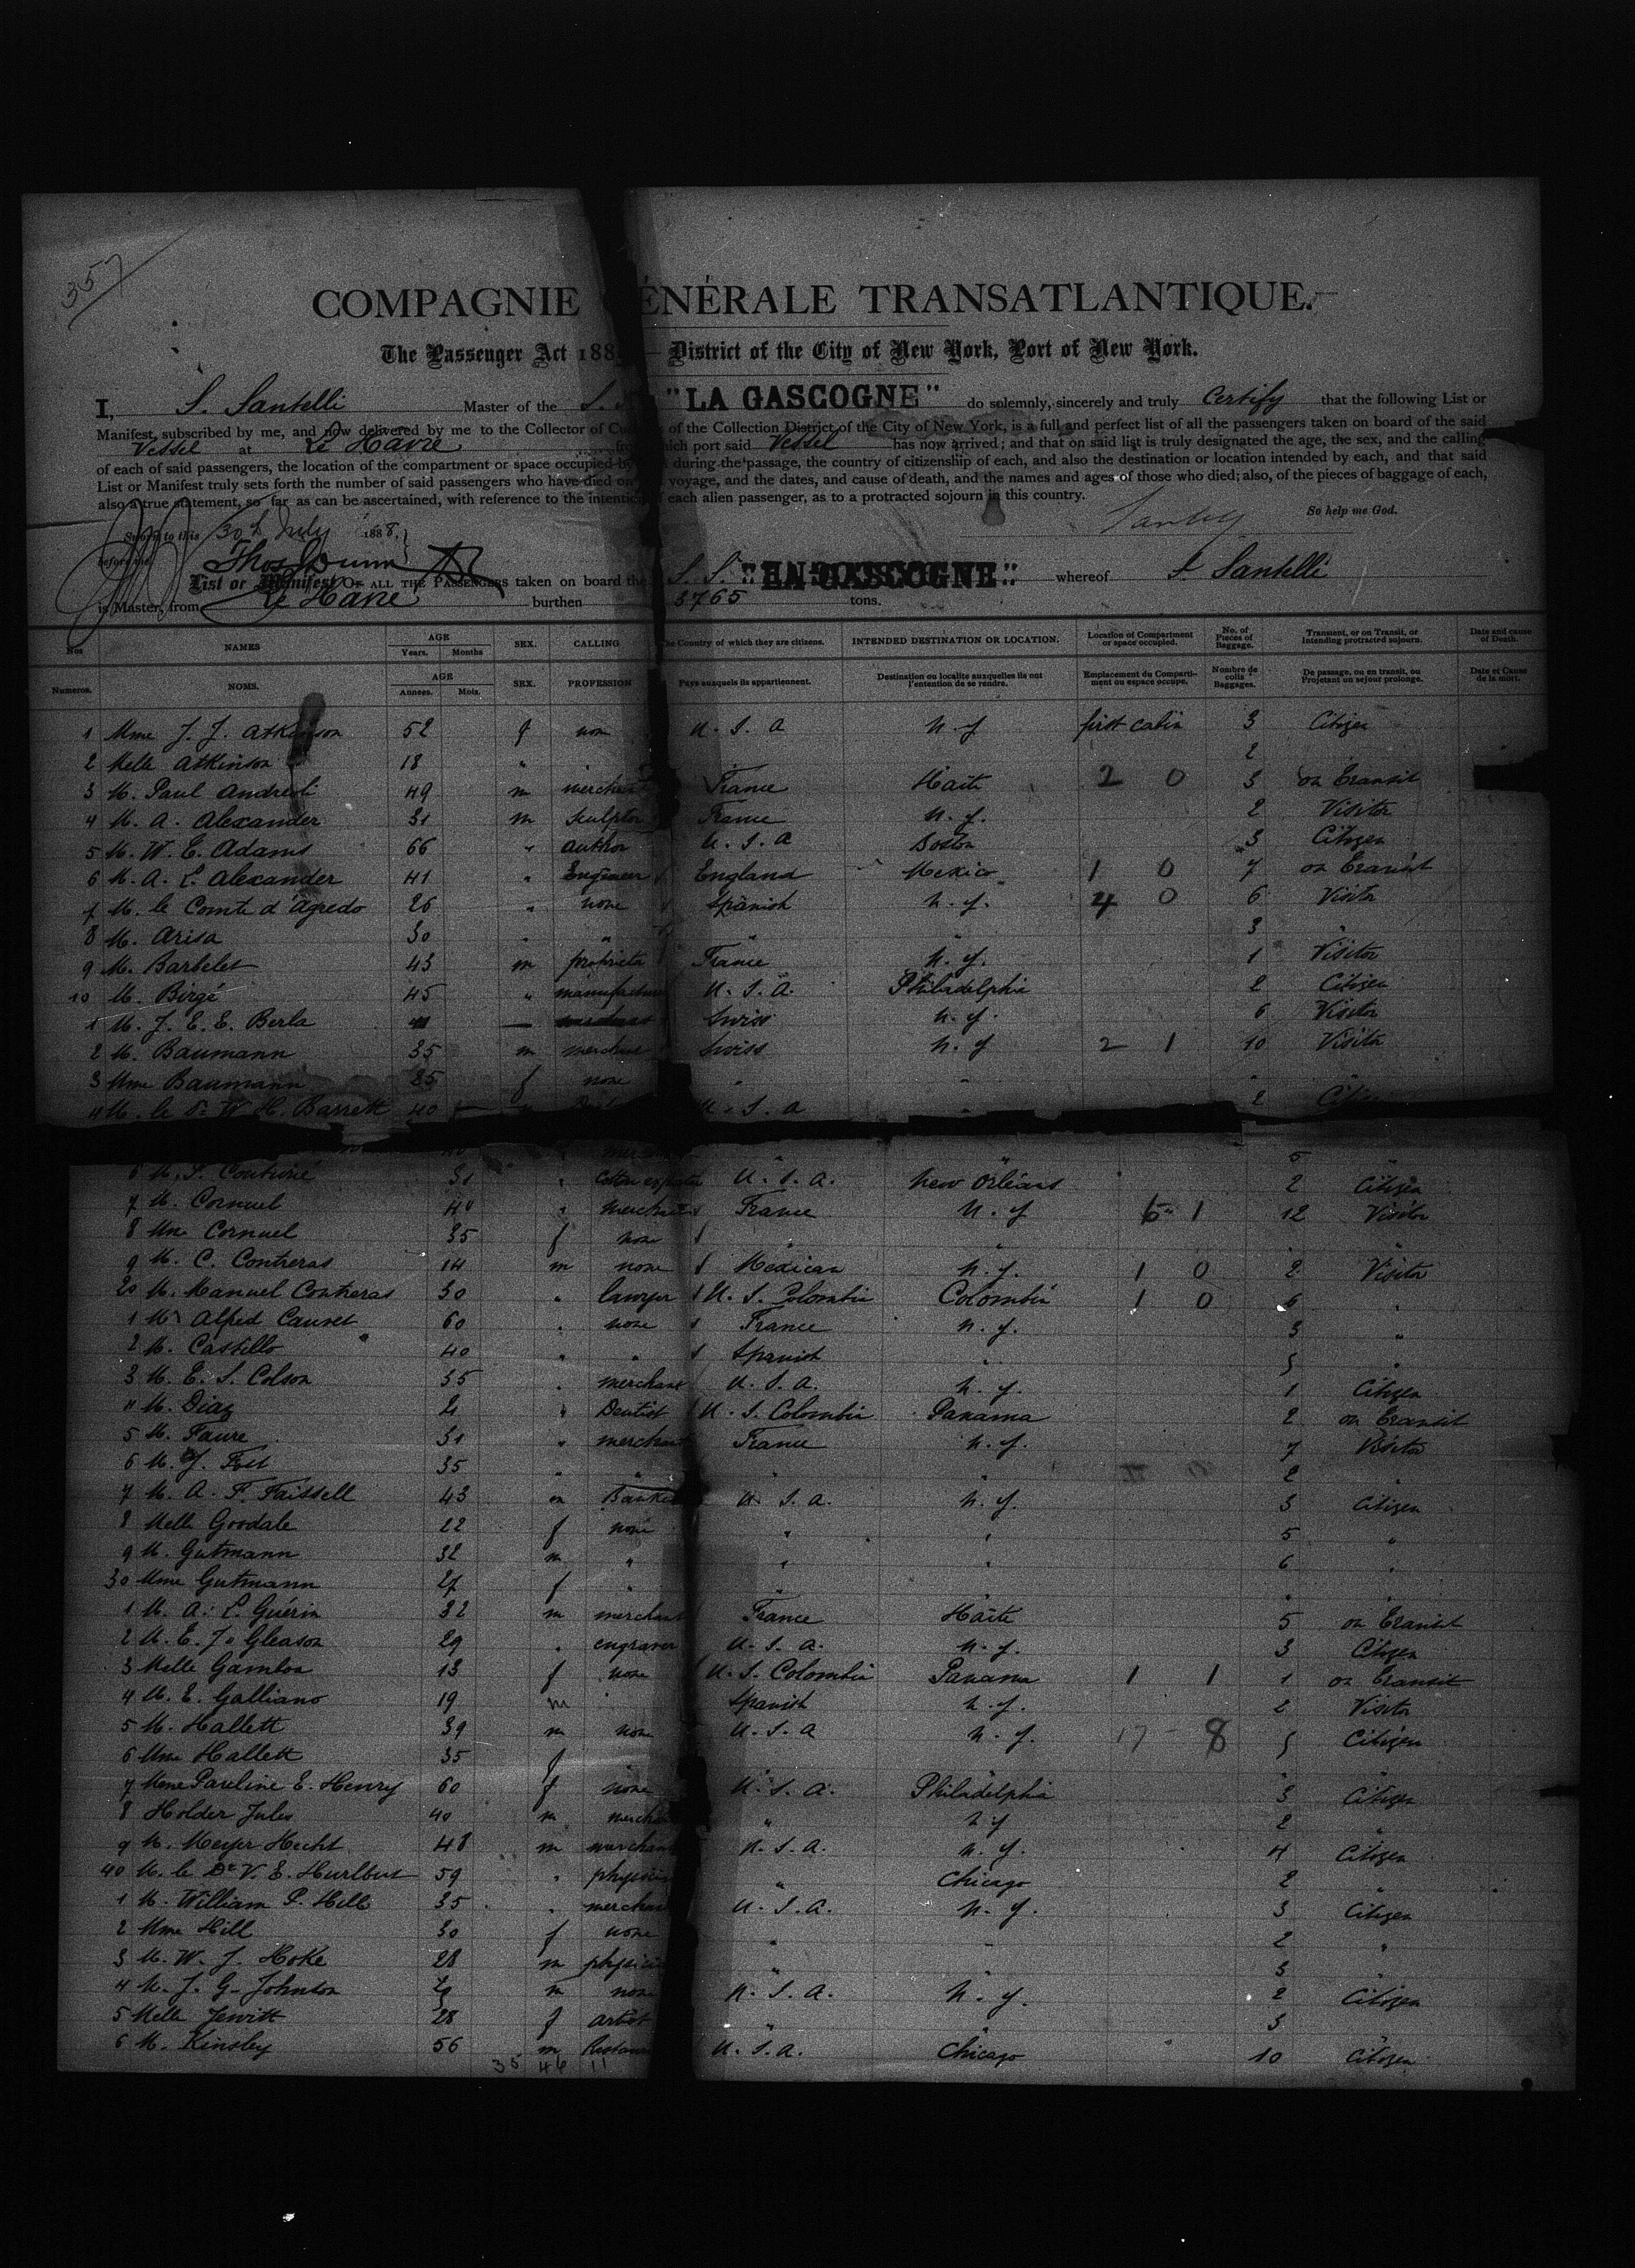 357
COMPAGNIE GÉNÉRALE TRANSATLANTIQUE.
The Passenger Act 188 — District of the City of New York, Port of New York.
I, S. Santelli Master of the S. S. "LA GASCOGNE" do solemnly, sincerely and truly Certify that the following List or
Manifest, subscribed by me, and now delivered by me to the Collector of Customs of the Collection District of the City of New York, is a full and perfect list of all the passengers taken on board of the said
Vessel at Le Havre from which port said Vessel has now arrived; and that on said list is truly designated the age, the sex, and the calling
of each of said passengers, the location of the compartment or space occupied by during the passage, the country of citizenship of each, and also the destination or location intended by each, and that said
List or Manifest truly sets forth the number of said passengers who have died on voyage, and the dates, and cause of death, and the names and ages of those who died; also, of the pieces of baggage of each,
also a true statement, so far as can be ascertained, with reference to the intention of each alien passenger, as to a protracted sojourn in this country.
So help me God.
Sworn to this 30th July 1888,
before me Thos Dunn
List or Manifest OF ALL THE PASSENGERS taken on board the S. S. "LA GASCOGNE" whereof S. Santelli
is Master, from Le Havre burthen 3765 tons.
Nos NAMES AGE Years. Months SEX. CALLING The Country of which they are citizens. INTENDED DESTINATION OR LOCATION. Location of Compartment or space occupied. No. of Pieces of Baggage. Transient, or on Transit, or Intending protracted sojourn. Date and cause of Death.
Numeros. NOMS. AGE Années. Mois. SEX. PROFESSION Pays auxquels ils appartiennent. Destination ou localite auxquelles ils ont l'entention de se rendre. Emplacement du Compartiment ou espace occupe. Nombre de colis Baggages. De passage, ou en transit, ou Projetant un sejour prolonge. Date et Cause de la mort.
1 Mme J. J. Atkinson 52 f non U. S. A N. Y first cabin 3 Citizen
2 Melle Atkinson 18 " 2
3 M. Paul Andreoli 49 m merchant France Haïti 2 0 3 on transit
4 M. A. Alexander 31 m sculptor France N. Y. 2 Visitor
5 M. W. E. Adams 66 " author U. S. A Boston 3 Citizen
6 M. A. L. Alexander 41 " Engineer England Mexico 1 0 7 on transit
7 M. le Comte d'Agredo 26 " none Spanish N. Y. 4 0 6 Visitor
8 M. Arisa 30 " " " " 3 "
9 M. Barbelet 43 m proprieta France N. Y. 1 Visitor
10 M. Birgé 45 " manufacturer U. S. A. Philadelphia 2 Citizen
1 M. J. E. E. Berla Swiss N. Y. 6 Visitor
2 M. Baumann 35 m merchant Swiss N. Y 2 1 10 Visitor
3 Mme Baumann 25 f none " " "
4 M. le Dr W. H. Barrett 40 U. S. A " 2 Citizen
5 "
6 M. S. Couturié 31 " Cotton exporter U. S. A. New Orleans 2 Citizen
7 M. Cornuel 40 " merchant France N. Y 1 12 Visitor
8 Mme Cornuel 35 f none " " " "
9 M. C. Contreras 14 m none Mexican N. Y. 1 0 2 Visitor
20 M. Manuel Contreras 30 " lawyer U. S. Colombia Colombia 1 0 6 "
1 M. Alfred Cauvet 60 " none France N. Y. 3 "
2 M. Castillo 40 " " Spanish " 5 "
3 M. E. S. Colson 35 " merchant U. S. A. N. Y. 1 Citizen
4 M. Diaz 21 " Dentist U. S. Colombia Panama 2 on transit
5 M. Faure 31 " merchant France N. Y. 7 Visitor
6 M. J. 35 " " " " 2 "
7 M. A. F. Faissell 43 m Banker U. S. A. N. Y. 3 Citizen
8 Melle Goodale 22 f none " " 5 "
9 M. Gutmann 32 m " " " 6 "
30 Mme Gutmann 27 f " " "
1 M. A. L. Guérin 32 m merchant France Haïti 5 on transit
2 M. E. J. Gleason 29 " engraver U. S. A. N. Y. 3 Citizen
3 Melle Gamboa 13 f none U. S. Colombia Panama 1 1 1 on transit
4 M. E. Galliano 19 m Spanish N. Y. 2 Visitor
5 M. Hallett 39 m none U. S. A N. Y. 17 - 8 5 Citizen
6 Mme Hallett 35 f " "
7 Mme Pauline E. Henry 60 f none U. S. A. Philadelphia 3 Citizen
8 Holder Jules 40 m merchant " N Y 2 "
9 M. Meyer Hecht 48 m merchant U. S. A. N. Y. 4 Citizen
40 M. le Dr V. E. Hurlbut 59 " physician " Chicago 2 "
1 M. William P. Hill 35 " merchant U. S. A. N. Y. 3 Citizen
2 Mme Hill 30 f none " " 2 "
3 M. W. J. Hoke 28 m physician " " 3 "
4 M. J. G. Johnston 29 m none U. S. A. N. Y. 2 Citizen
5 Melle Jewitt 28 f artist " " 3 "
6 M. Kinsley 56 m U. S. A. Chicago 10 Citizen
35 46 11